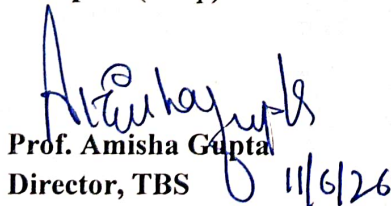 Amisha Gupta
Prof. Amisha Gupta
Director, TBS 11/6/26